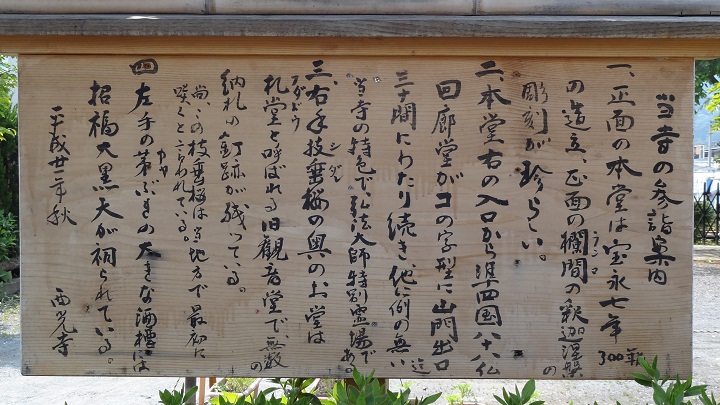 当寺の参詣案内
一、正面の本堂は宝永七年 300年
の造立、正面の欄間の釈迦涅槃の
ランマ
彫刻が珍らしい。
二、本堂右の入口から準四国八十八仏
回廊堂がコの字型に山門出口迄
三十間にわたり続き、他に例の無い
当寺の特色で弘法大師特別霊場である。
三、右手枝垂桜の奥のお堂は
シダレ
札堂と呼ばれる旧観音堂で無数の
フダドウ
納札の釘跡が残っている。
尚、この枝垂桜は当地方で最初に
咲くと言われている。
四、左手の茅ぶきの大きな酒槽には
カヤ
招福大黒天が祠られている。
平成廿一年秋
西光寺